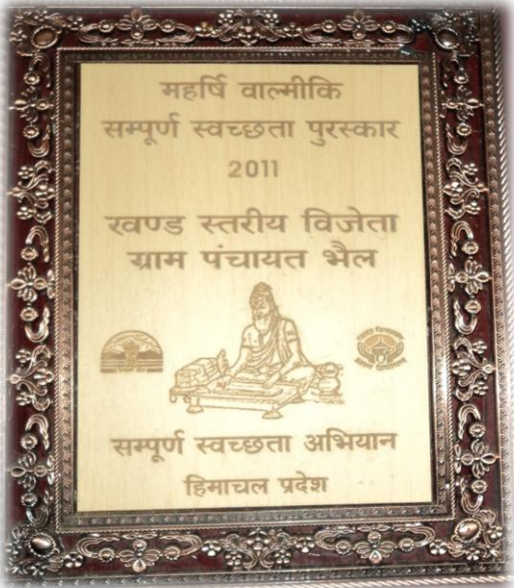 महर्षि वाल्मीकि
सम्पूर्ण स्वच्छता पुरस्कार
2011
खण्ड स्तरीय विजेता
ग्राम पंचायत भैल
सम्पूर्ण स्वच्छता अभियान
हिमाचल प्रदेश